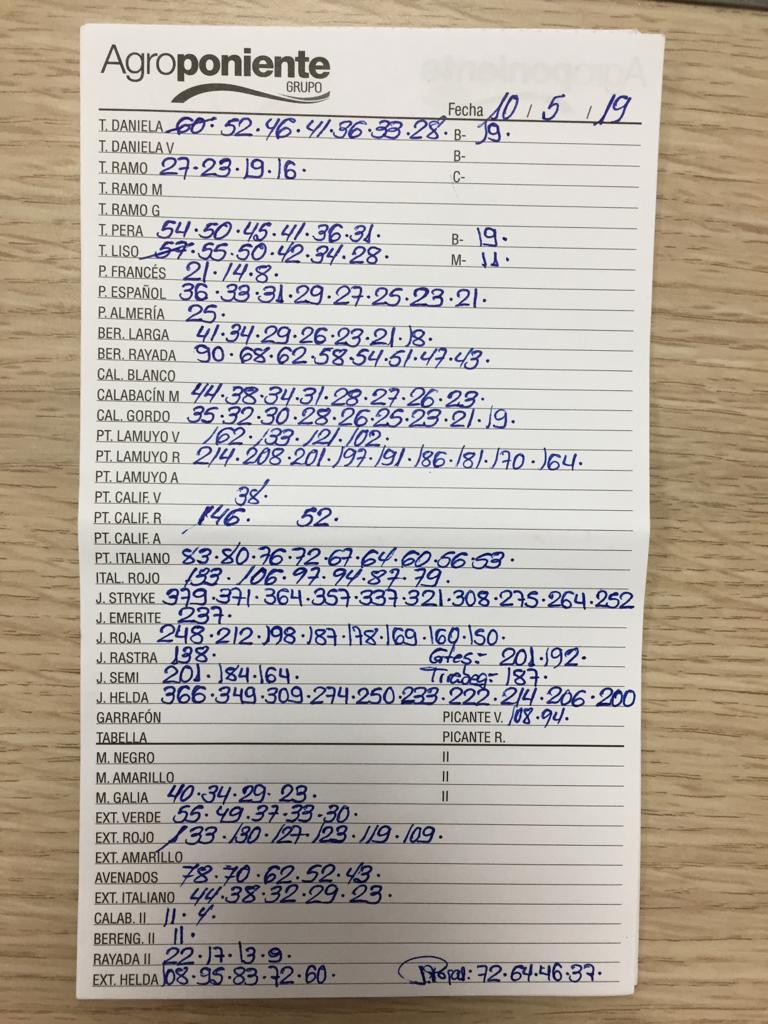 Agroponiente
GRUPO
Fecha 10 / 5 / 19
T. DANIELA 60· 52·46·41·36·33·28· B- 19·
T. DANIELA V B-
T. RAMO 27·23·19·16· C-
T. RAMO M
T. RAMO G
T. PERA 54·50·45·41·36·31· B- 19·
T. LISO 57·55·50·42·34·28· M- 11·
P. FRANCÉS 21·14·8·
P. ESPAÑOL 36·33·31·29·27·25·23·21·
P. ALMERÍA 25·
BER. LARGA 41·34·29·26·23·21·18·
BER. RAYADA 90·68·62·58·54·51·47·43·
CAL. BLANCO
CALABACÍN M 44·38·34·31·28·27·26·23·
CAL. GORDO 35·32·30·28·26·25·23·21·19·
PT. LAMUYO V 162·133·121·102·
PT. LAMUYO R 214·208·201·197·191·186·181·170·164·
PT. LAMUYO A
PT. CALIF. V 38·
PT. CALIF. R 146· 52·
PT. CALIF. A
PT. ITALIANO 83·80·76·72·67·64·60·56·53·
ITAL. ROJO 133·106·97·94·87·79·
J. STRYKE 379·371·364·357·337·321·308·275·264·252
J. EMERITE 237·
J. ROJA 248·212·198·187·178·169·160·150·
J. RASTRA 138· Gtes:- 201·192·
J. SEMI 201·184·164· Tirabeq- 187·
J. HELDA 366·349·309·274·250·233·222·214·206·200
GARRAFÓN PICANTE V. 108·94·
TABELLA PICANTE R.
M. NEGRO II
M. AMARILLO II
M. GALIA 40·34·29·23· II
EXT. VERDE 55·49·37·33·30·
EXT. ROJO 133·130·127·123·119·109·
EXT. AMARILLO
AVENADOS 78·70·62·52·43·
EXT. ITALIANO 44·38·32·29·23·
CALAB. II 11·4·
BERENG. II 11·
RAYADA II 22·17·13·9·
EXT. HELDA 108·95·83·72·60· : 72·64·46·37·